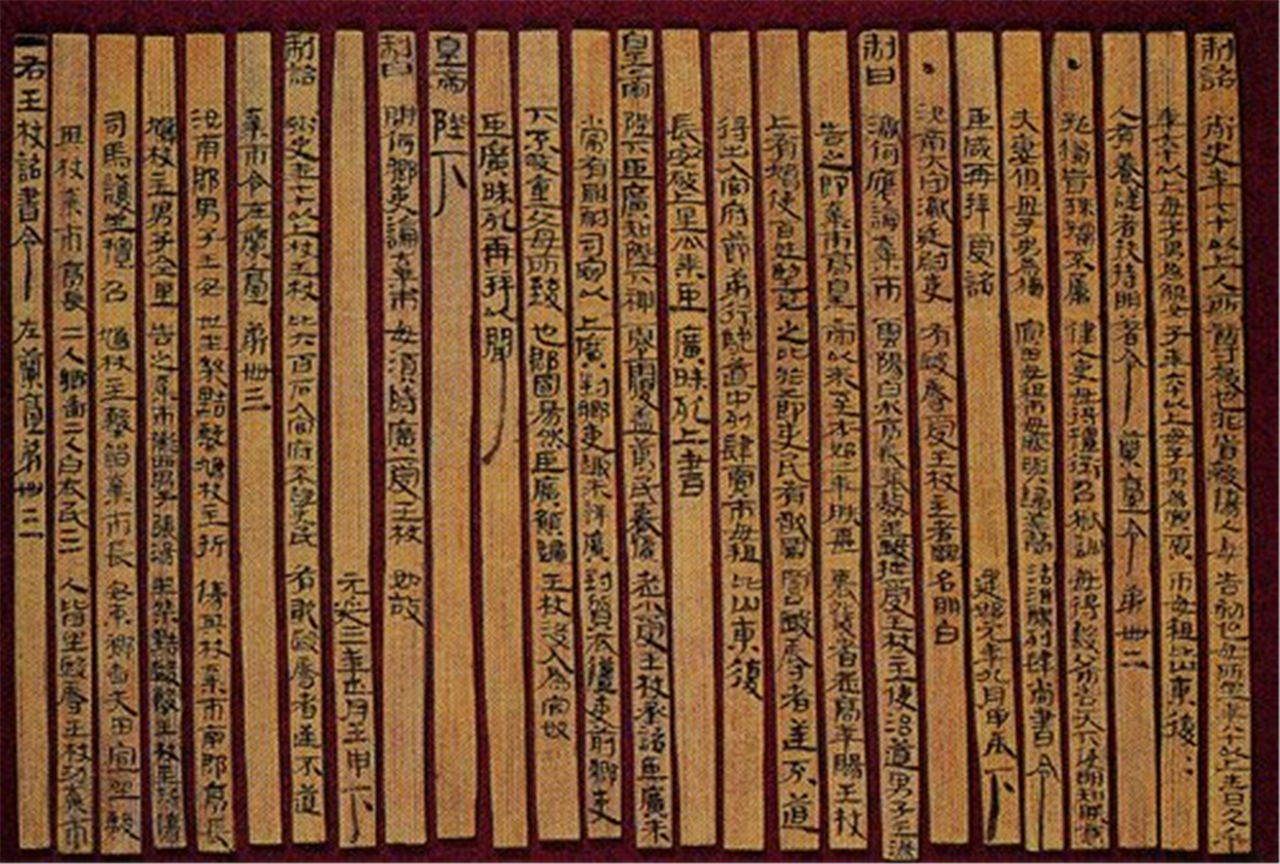 制詔御史年七十以上人所尊敬也非首殺傷人毋告劾也毋所坐年八十以上生日久乎
年六十以上毋子男為鯤女子年六十以上毋子男為寡賈市毋租比山東復
人有養謹者扶持明著令蘭臺令第卌二
●孤獨盲珠孺不屬律人吏毋得擅徵召獄訟毋得毆布告天下使明知朕意
夫妻俱毋子男為獨寡田毋租市毋賦與歸義同沽酒醪列肆尚書令
臣咸再拜受詔 建始元年九月甲辰下
●汝南太守讞廷尉吏有毆辱受王杖主者罪名明白
制曰讞何應論棄市雲陽白水亭長張熬坐毆抴受王杖主使治道男子王湯
告之即棄市高皇帝以來至本始二年朕甚哀憐耆老高年賜王杖
上有鳩使百姓望見之比於節吏民有敢罵詈毆辱者逆不道
得出入官府節第行馳道中列肆賈市毋租比山東復
長安敬上里公乘臣廣昧死上書
皇帝陛下臣廣知陛下神零覆蓋萬民哀憐老小受王杖承詔臣廣未
常有罪耐司寇以上廣對鄉吏趣未辨廣對質衣彊吏前鄉吏
下不敬重父母所致也郡國易然臣廣願歸王杖沒入為官奴
臣廣昧死再拜以聞
皇帝陛下
制曰問何鄉吏論棄市毋須時廣受王杖如故
元延三年正月壬申下
制詔御史年七十以上杖王杖比六百石入官府不趨吏民有敢毆辱者逆不道
棄市令在蘭臺第卌三
汝南郡男子王安世坐桀黠擊鳩杖主折傷其杖棄市南郡亭長
鳩杖主男子金里告之棄市隴西男子張湯坐桀黠毆擊王杖主折傷
司馬護坐擅召鳩杖主擊留棄市長安東鄉嗇夫田宣坐擊
其杖棄市亭長二人鄉嗇二人白衣民三人皆坐毆辱王杖功棄市
右王杖詔書令 在蘭臺第卌三